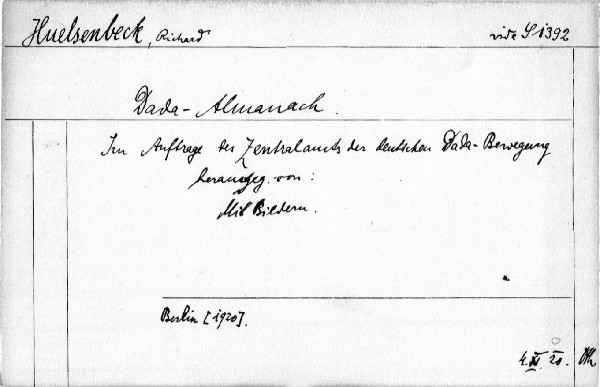 Huelsenbeck, Richard
vide S 1392
Dada-Almanach.
Im Auftrage des Zentralamts der deutschen Dada-Bewegung
herausgeg. von:
Mit Bildern.
Berlin [1920].
4. XI. 20.